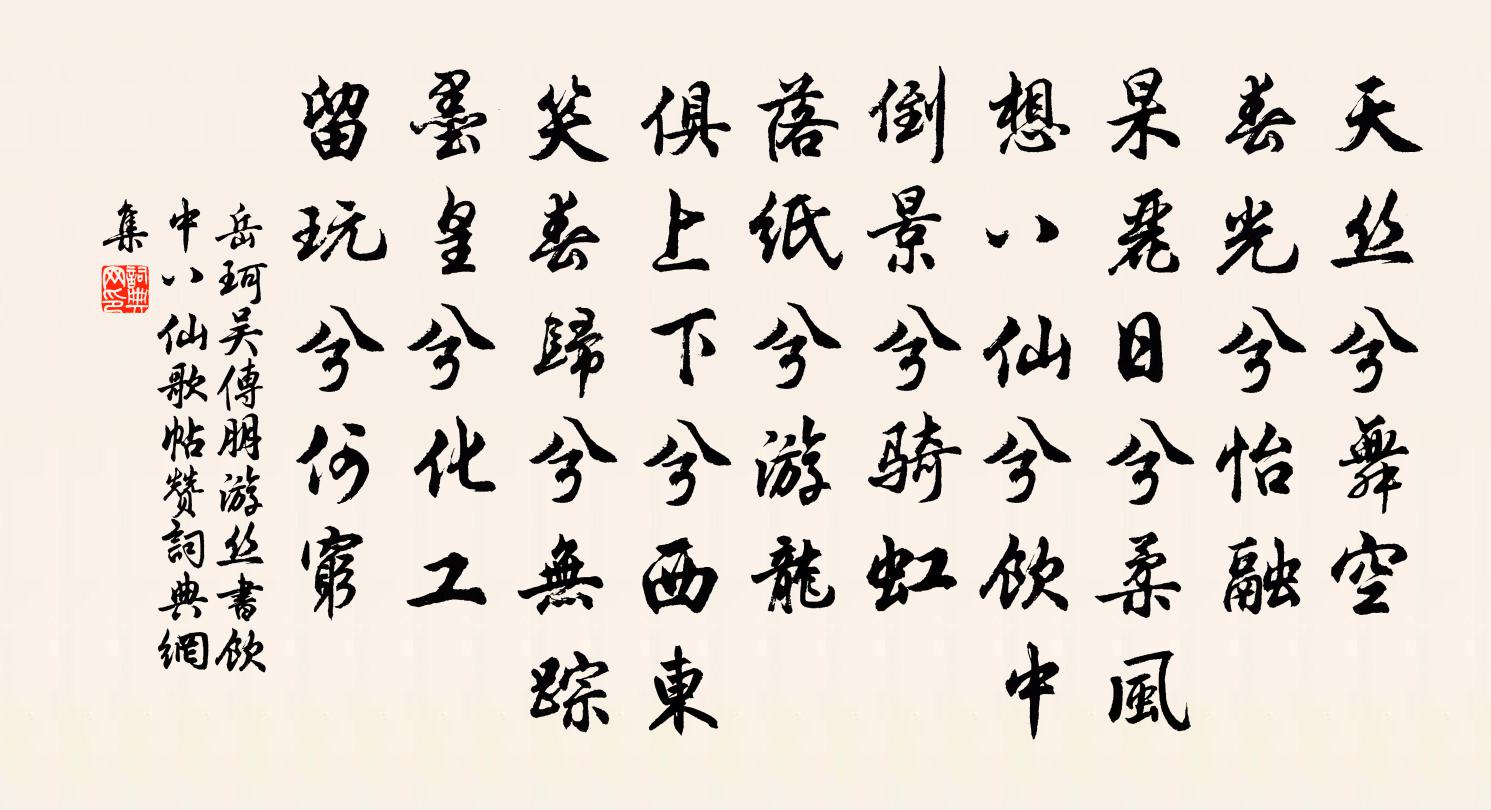 天丝兮舞空
春光兮怡融
杲麗日兮柔風
想八仙兮飲中
倒景兮騎虹
落紙兮游龍
俱上下兮西東
笑春歸兮無踪
墨皇兮化工
留玩兮何窮
岳珂吴傅朋游丝書飲
中八仙歌帖赞詞典網
集
詞典网印